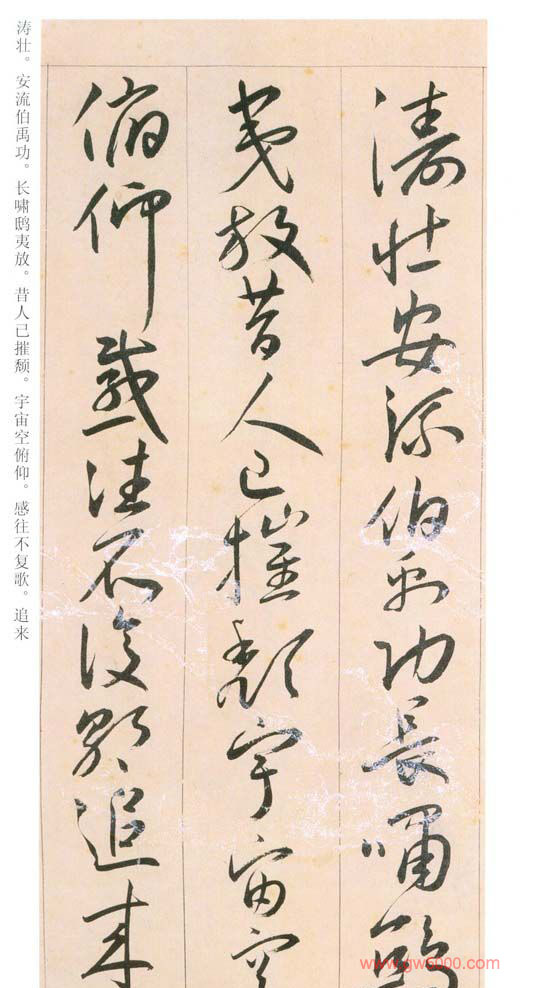 濤壯安流伯禹功長嘯鴟
夷放昔人已摧頹宇宙空
俯仰感往不復歌追来
涛壮。安流伯禹功。长啸鸱夷放。昔人已摧颓。宇宙空俯仰。感往不复歌。追来
www.gw5000.com